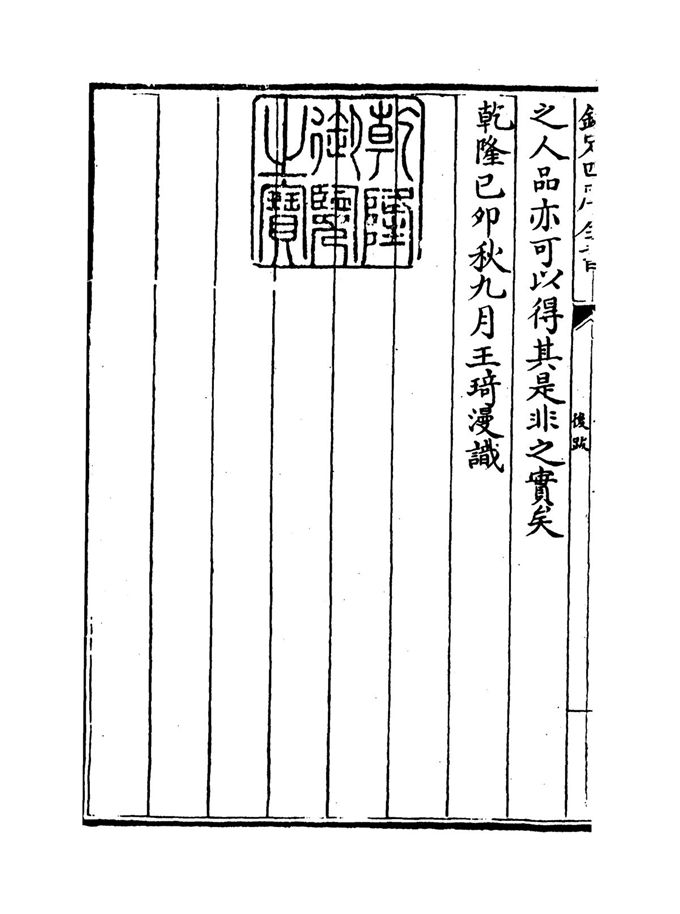 欽定四庫全書
後跋
之人品亦可以得其是非之實矣
乾隆己卯秋九月王琦漫識
乾隆
御覽
之寶